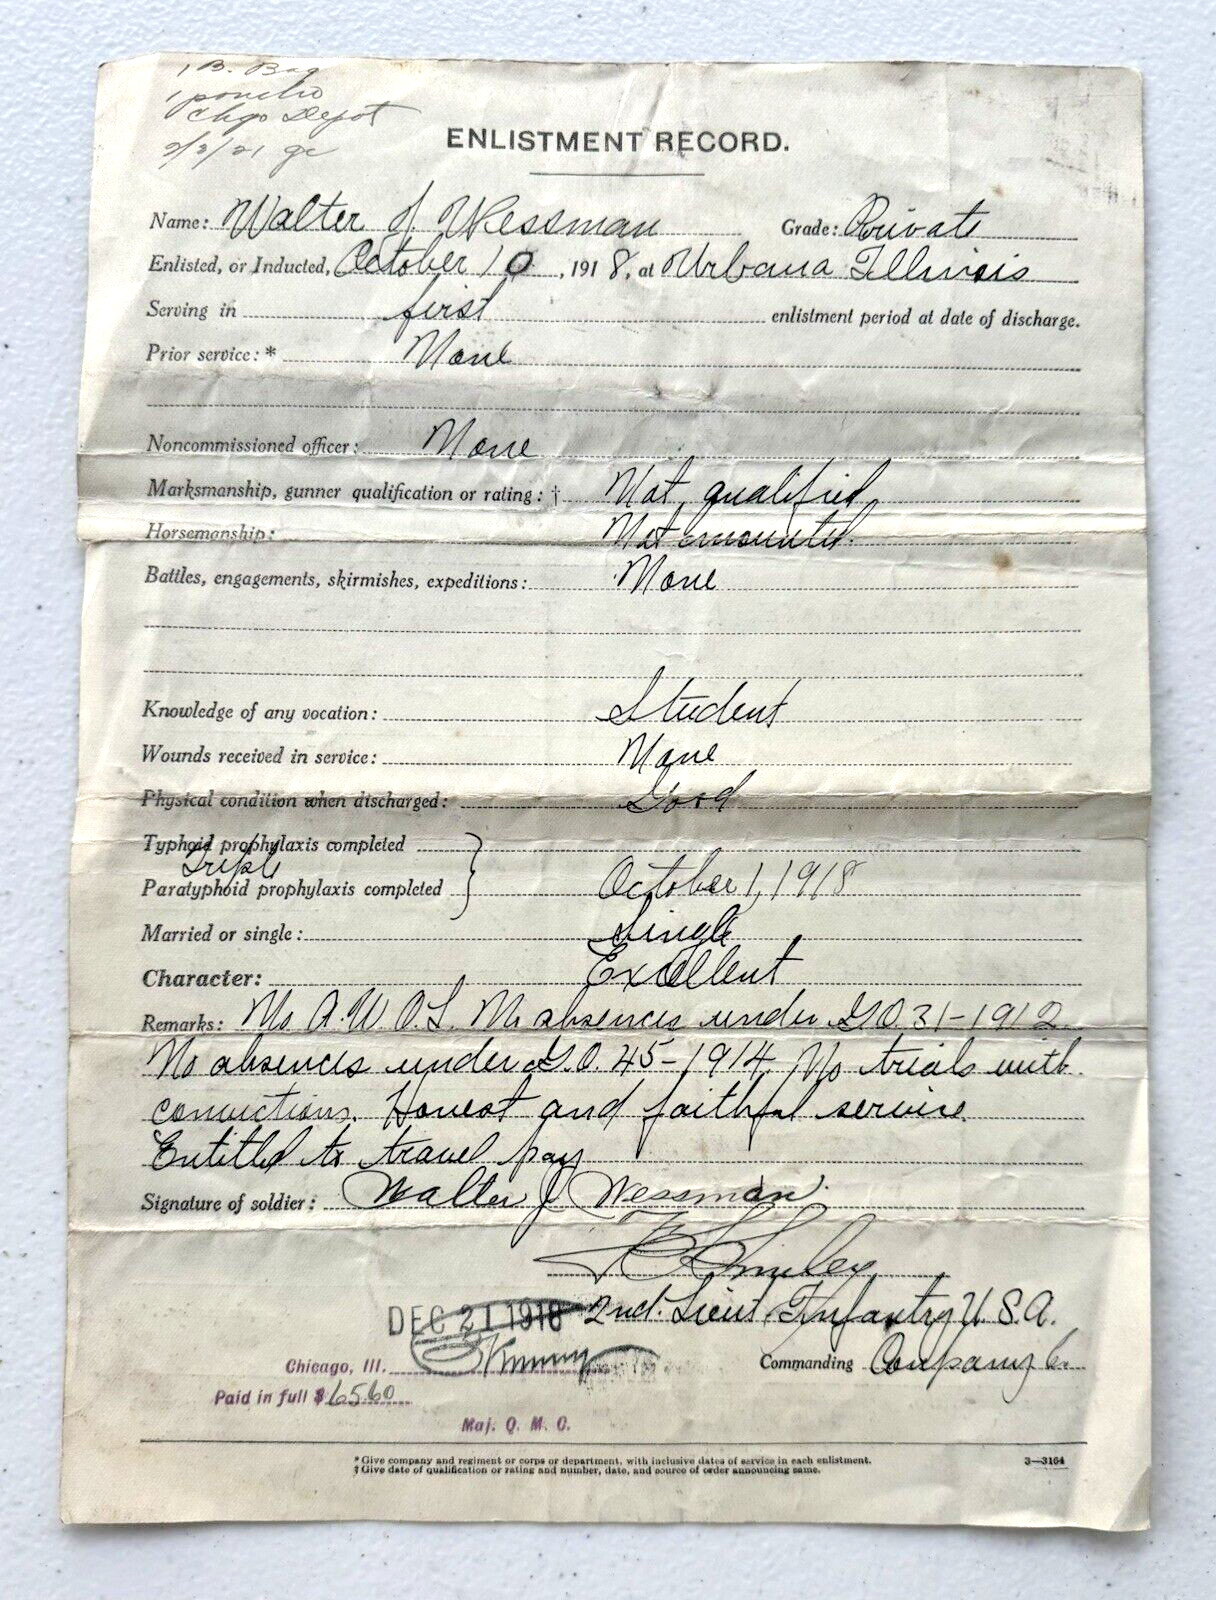 1 B. Bag
1 poncho
Chgo Depot
2/3/21
ENLISTMENT RECORD.
Name: Walter J. Wessman Grade: Private
Enlisted, or Inducted, October 10, 1918, at Urbana Illinois
Serving in first enlistment period at date of discharge.
Prior service: * None
Noncommissioned officer: None
Marksmanship, gunner qualification or rating: † Not qualified
Horsemanship: Not mounted.
Battles, engagements, skirmishes, expeditions: None
Knowledge of any vocation: Student
Wounds received in service: None
Physical condition when discharged: Good
Typhoid prophylaxis completed
Triple
Paratyphoid prophylaxis completed } October 1, 1918
Married or single: Single
Character: Excellent
Remarks: No A.W.O.L. No absences under G.O. 31-1912
No absences under G.O. 45-1914. No trials with
convictions. Honest and faithful service.
Entitled to travel pay
Signature of soldier: Walter J. Wessman.
2nd. Lieut. Infantry U.S.A.
DEC 21 1918
Chicago, Ill. Commanding Company
Paid in full $65.60
Maj. Q. M. C.
* Give company and regiment or corps or department, with inclusive dates of service in each enlistment. 3—3164
† Give date of qualification or rating and number, date, and source of order announcing same.